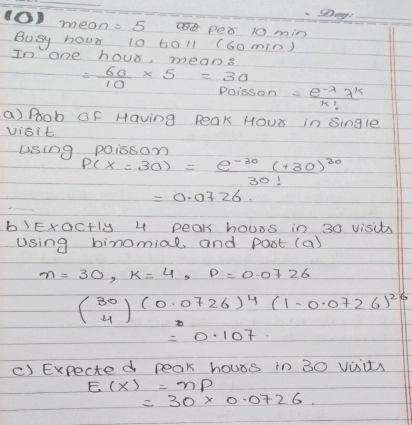 Day:
(10) mean = 5 per 10 min
Busy hour 10 to 11 (60 min)
In one hour, means
= 60/10 × 5 = 30
Poisson = e^-λ λ^k / k!
a) Prob of Having Peak Hour in Single
visit
using poisson
P(X = 30) = e^-30 (+30)^30 / 30!
= 0.0726.
b) Exactly 4 peak hours in 30 visits
Using binomial and Part (a)
n = 30, K = 4, P = 0.0726
(30 4) (0.0726)^4 (1-0.0726)^26
= 0.107.
c) Expected peak hours in 30 visits
E(X) = np
= 30 × 0.0726.